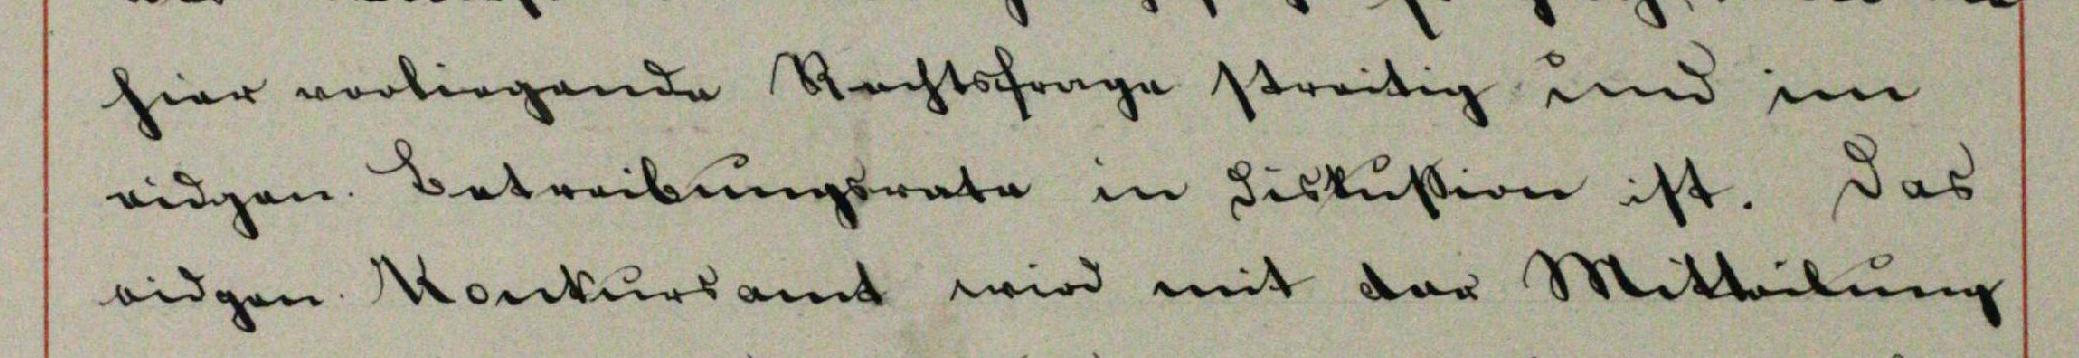 hier vorliegende Rechtsfrage streitig und im
eidgen. Betreibungsrate in Diskussion ist. Das
eidgen. Konkursamt wird mit der Mitteilung